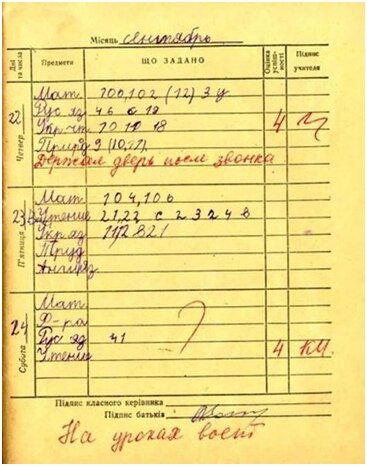 Місяць сентябрь
Дні та числа Предмети ЩО ЗАДАНО Оцінка успішності Підпис учителя
22 Четвер
Мат. 100,102 (12) 3 у
Рус яз 46 с 19
Укр чт. 70 10 18 4
Природ 9 (10,11)
Держал дверь после звонка
23 П'ятниця
Мат. 104,106
Чтение 21,22 с 23 24 в
Укр яз
Труд
Англ яз.
24 Субота
Мат.
Ф-ра
Рус яз 41
Чтение 4
Підпис класного керівника
Підпис батьків
На уроках воет